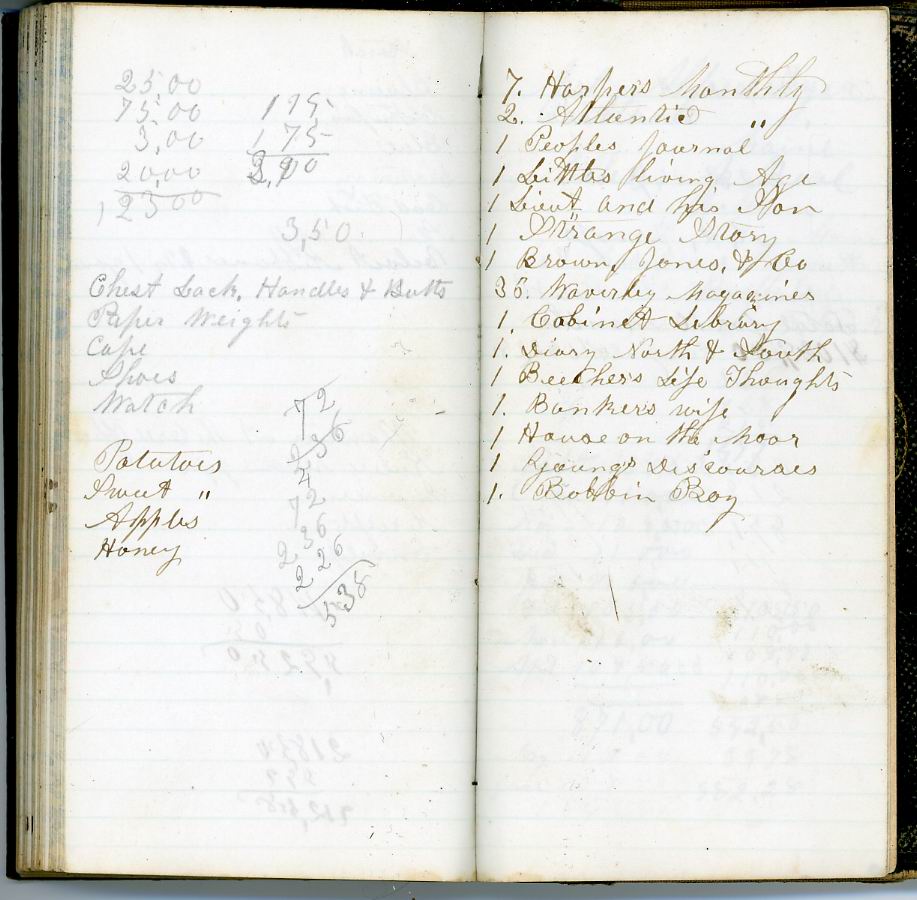 25,00
75,00
3,00
20,00
123 00
1 75
1 75
3,50
Chest Lock, Handles & Butts
Paper Weights
Cape
Shoes
Watch
Potatois
Sweet "
Apples
Honey
72
236
4
72
236
226
538
7. Harpers Monthly
2. Atlantic "
1 Peoples Journal
1 Littles living Age
1 Lieut and his Son
1 Strange Story
1 Brown, Jones, & Co
36. Waverley Magazines
1. Cabinet Library
1. Diary North & South
1 Beechers Life Thoughts
1. Bankers wife
1 House on the Moor
1 Youngs Discourses
1. Bobbin Boy